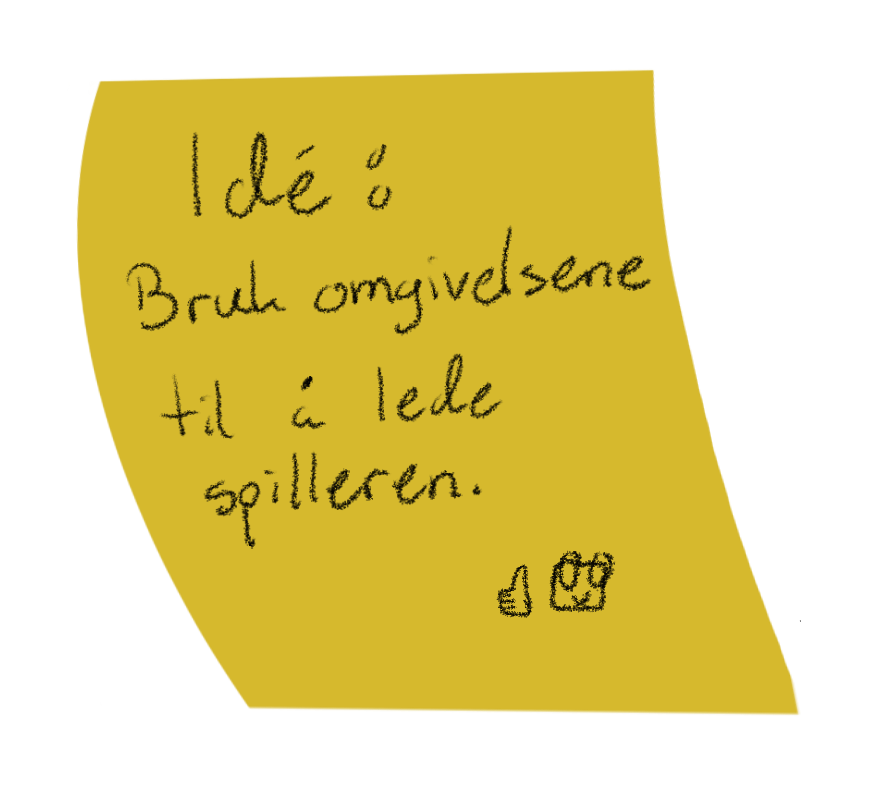 Idé:
Bruk omgivelsene
til å lede
spilleren.